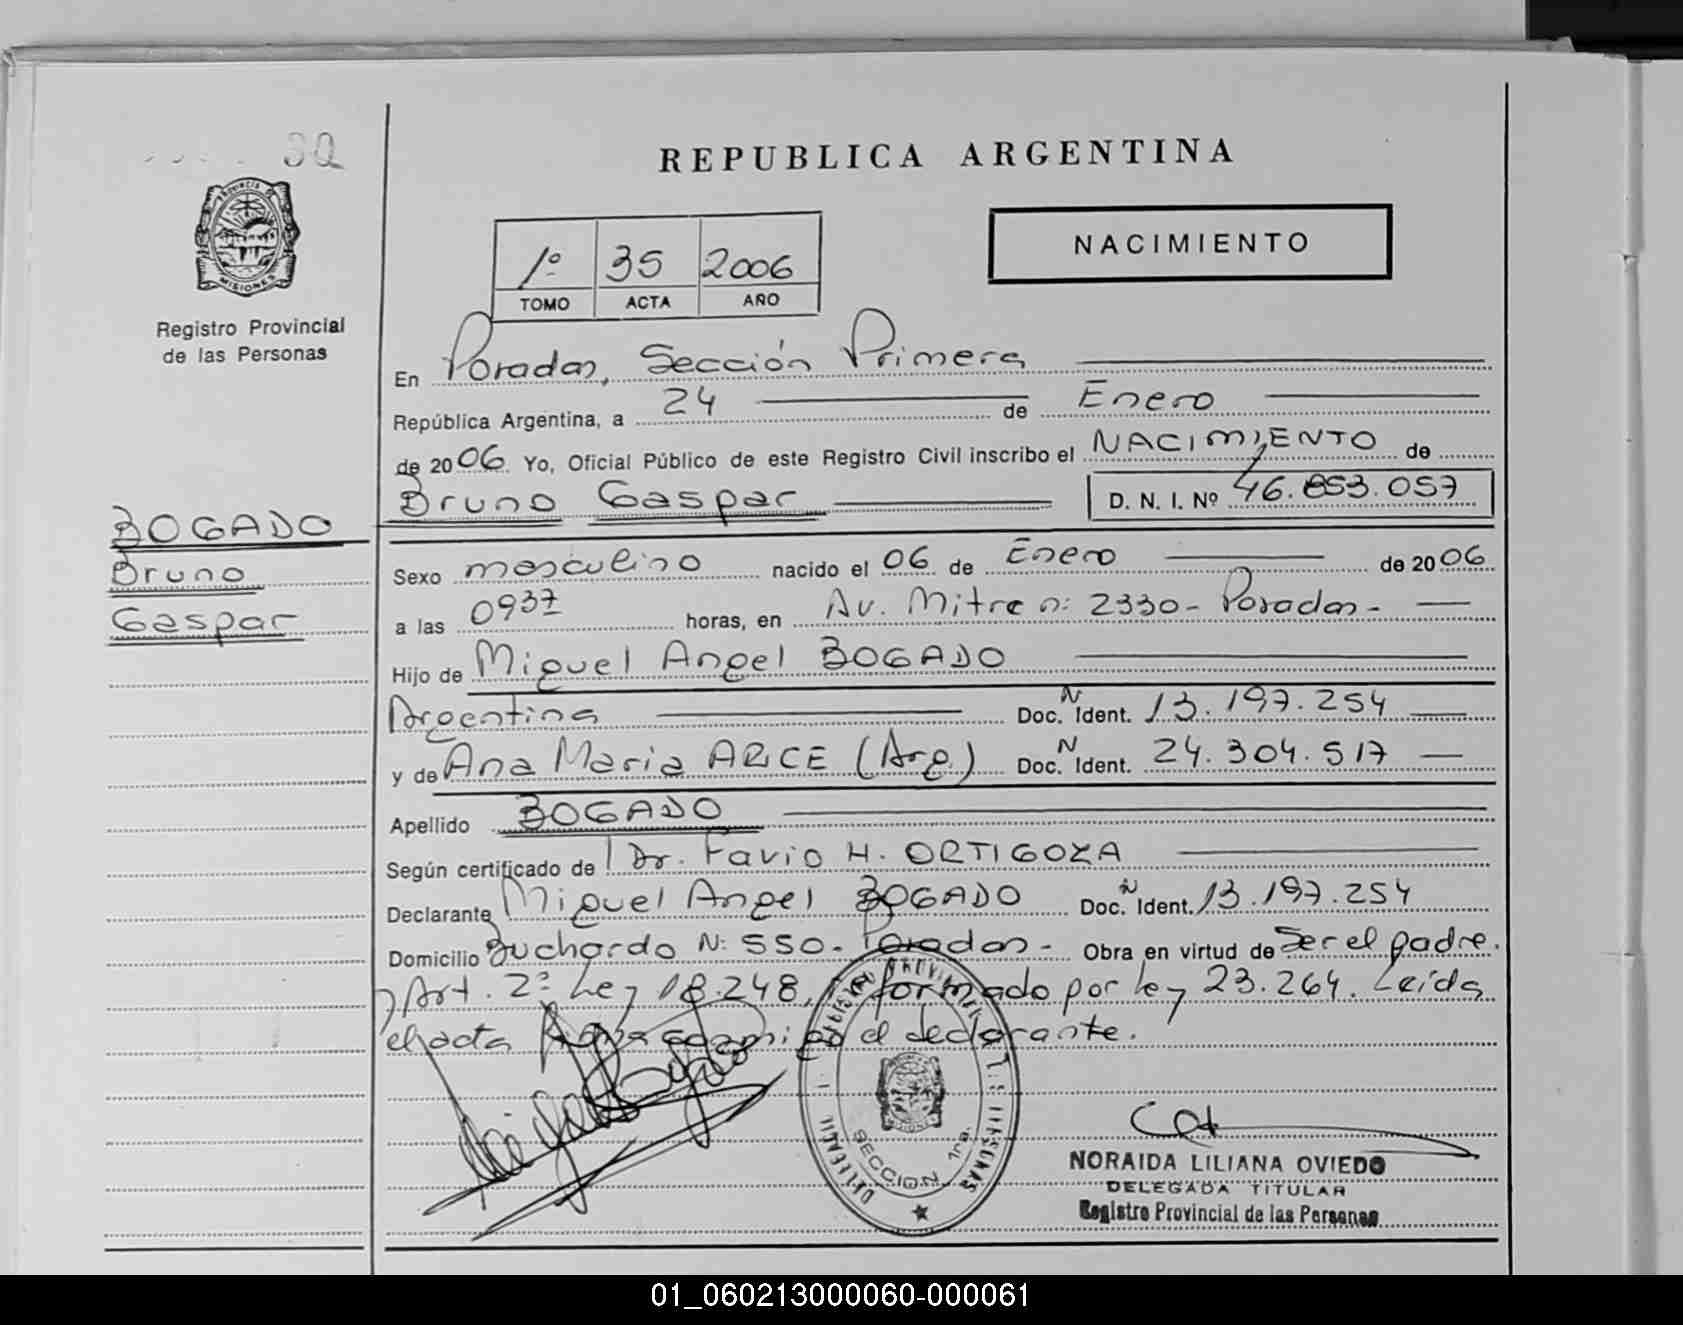 REPUBLICA ARGENTINA
PROVINCIA DE MISIONES
Registro Provincial
de las Personas
1º 35 2006
TOMO ACTA AÑO
NACIMIENTO
En Posadas, Sección Primera
República Argentina, a 24 de Enero
de 2006 Yo, Oficial Público de este Registro Civil inscribo el NACIMIENTO de
Bruno Gaspar D. N. I. Nº 46.853.057
BOGADO
Bruno
Gaspar
Sexo masculino nacido el 06 de Enero de 2006
a las 0937 horas, en Av. Mitre n: 2330 - Posadas -
Hijo de Miguel Angel BOGADO
Argentina Doc. N Ident. 13.197.254
y de Ana Maria ARCE (Arg.) Doc. N Ident. 24.304.517
Apellido BOGADO
Según certificado de Dr. Favio H. ORTIGOZA
Declarante Miguel Angel BOGADO Doc. N Ident. 13.197.254
Domicilio Buchardo N: 550 - Posadas - Obra en virtud de Ser el padre.
y Art. 2º Ley 18.248, reformado por ley 23.264. Leída
el acta firma conmigo el declarante.
SECCION 1ra.
NORAIDA LILIANA OVIEDO
DELEGADA TITULAR
Registro Provincial de las Personas
01_060213000060-000061